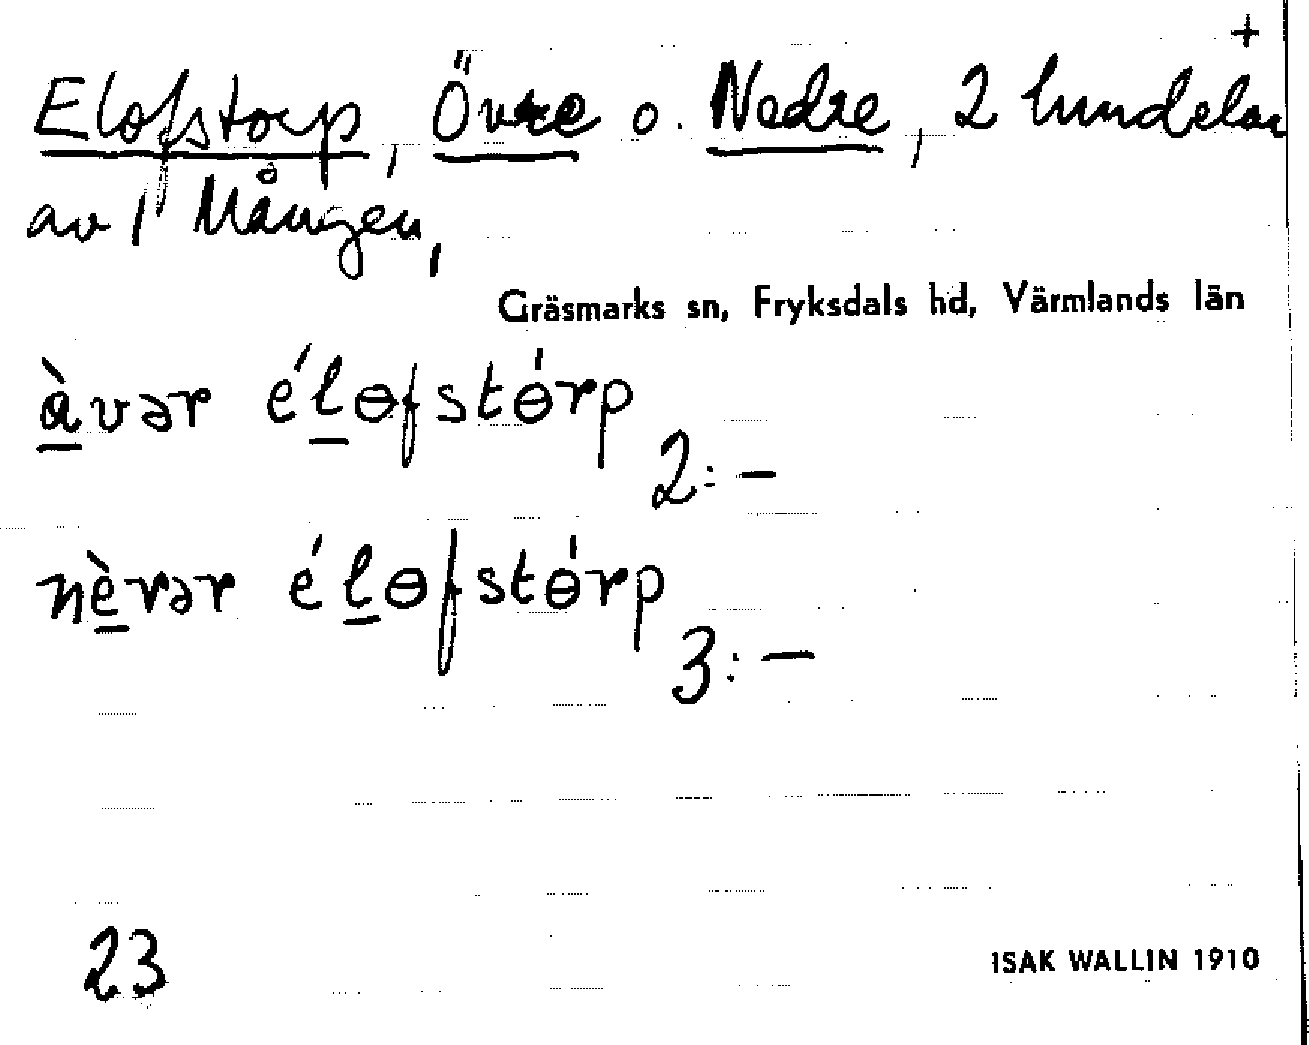 +
Elofstorp, Övre o. Nedre, 2 hmdelar
av 1 Mången,
Gräsmarks sn, Fryksdals hd, Värmlands län
àvər élɵfstɵ́rp
2:-
nèrər élɵfstɵ́rp
3:-
23
ISAK WALLIN 1910